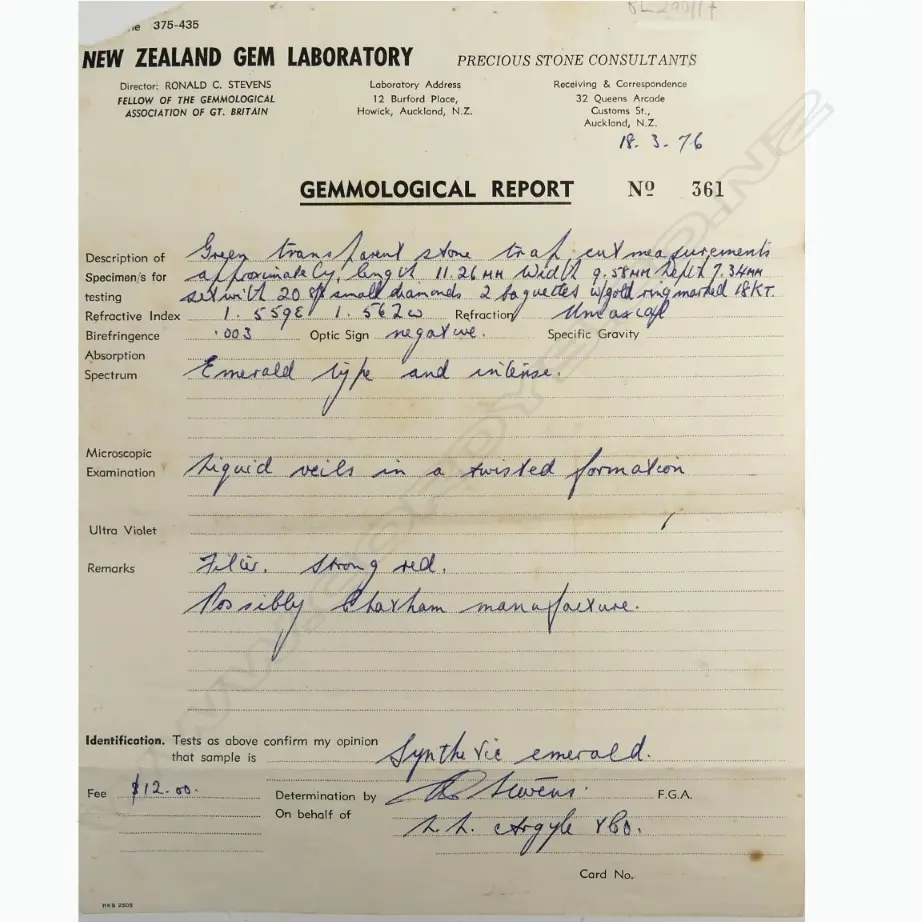 375-435
NEW ZEALAND GEM LABORATORY PRECIOUS STONE CONSULTANTS
Director: RONALD C. STEVENS Laboratory Address Receiving & Correspondence
FELLOW OF THE GEMMOLOGICAL 12 Burford Place, 32 Queens Arcade
ASSOCIATION OF GT. BRITAIN Howick, Auckland, N.Z. Customs St.,
Auckland, N.Z.
18. 3. 76
GEMMOLOGICAL REPORT Nº 361
Description of Green transparent stone trap cut measurements
Specimen/s for approximately, length 11.26 MM width 9.58MM depth 7.34MM
testing set with 20 small diamonds 2 baguettes w/gold ring marked 18KT.
Refractive Index 1.559E 1.562ω Refraction Uniaxial
Birefringence .003 Optic Sign negative. Specific Gravity
Absorption
Spectrum Emerald type and intense.
Microscopic
Examination Liquid veils in a twisted formation
Ultra Violet
Remarks Filter. Strong red.
Possibly Chatham manufacture.
Identification. Tests as above confirm my opinion
that sample is Synthetic emerald.
Fee $12.00. Determination by Stevens. F.G.A.
On behalf of Argyle & Co.
Card No.
PKB 2505
WWW.CORDYS.CO.NZ